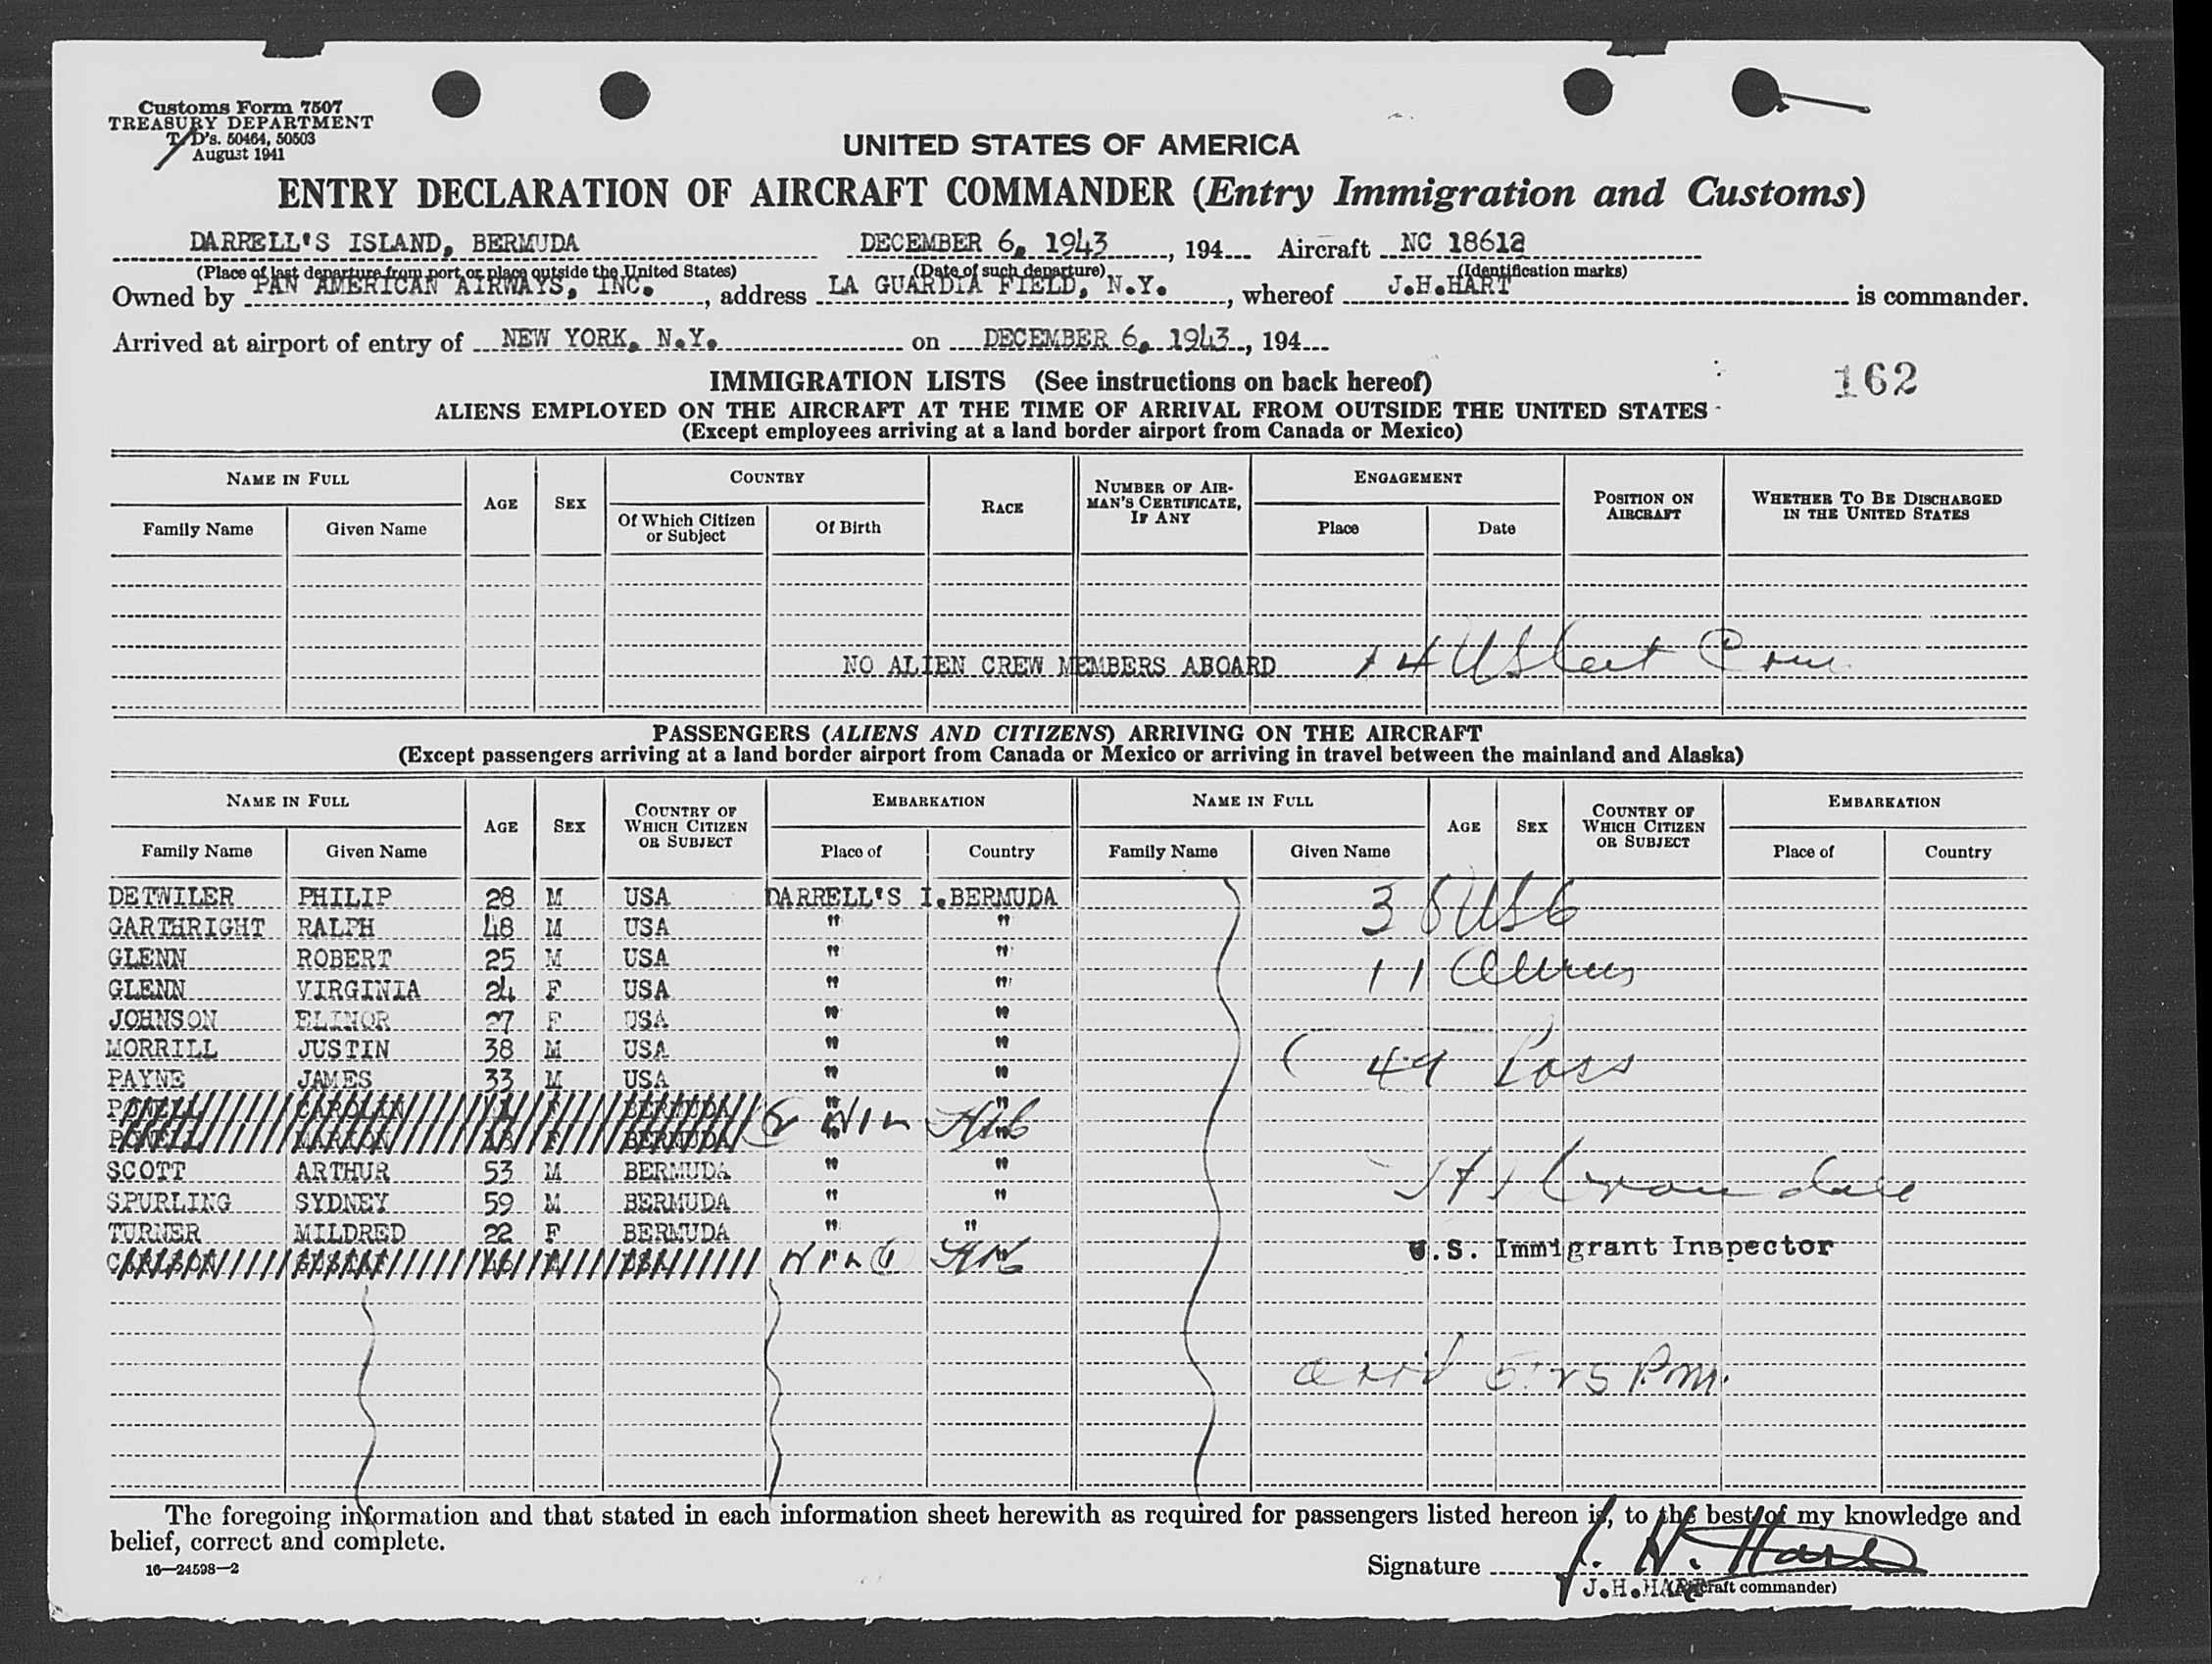 Customs Form 7507
TREASURY DEPARTMENT
T/D's. 50464, 50503
August 1941
UNITED STATES OF AMERICA
ENTRY DECLARATION OF AIRCRAFT COMMANDER (Entry Immigration and Customs)
DARRELL'S ISLAND, BERMUDA DECEMBER 6, 1943, 194 Aircraft NC 18612
(Place of last departure from port or place outside the United States) (Date of such departure) (Identification marks)
Owned by PAN AMERICAN AIRWAYS, INC., address LA GUARDIA FIELD, N.Y., whereof J.H.HART is commander.
Arrived at airport of entry of NEW YORK, N.Y. on DECEMBER 6, 1943, 194
IMMIGRATION LISTS (See instructions on back hereof)
162
ALIENS EMPLOYED ON THE AIRCRAFT AT THE TIME OF ARRIVAL FROM OUTSIDE THE UNITED STATES
(Except employees arriving at a land border airport from Canada or Mexico)
NAME IN FULL AGE SEX COUNTRY RACE NUMBER OF AIRMAN'S CERTIFICATE, IF ANY ENGAGEMENT POSITION ON AIRCRAFT WHETHER TO BE DISCHARGED IN THE UNITED STATES
Family Name Given Name Of Which Citizen or Subject Of Birth Place Date
NO ALIEN CREW MEMBERS ABOARD
PASSENGERS (ALIENS AND CITIZENS) ARRIVING ON THE AIRCRAFT
(Except passengers arriving at a land border airport from Canada or Mexico or arriving in travel between the mainland and Alaska)
NAME IN FULL AGE SEX COUNTRY OF WHICH CITIZEN OR SUBJECT EMBARKATION NAME IN FULL AGE SEX COUNTRY OF WHICH CITIZEN OR SUBJECT EMBARKATION
Family Name Given Name Place of Country Family Name Given Name Place of Country
DETWILER PHILIP 28 M USA DARRELL'S I. BERMUDA
GARTHRIGHT RALPH 48 M USA " "
GLENN ROBERT 25 M USA " "
GLENN VIRGINIA 24 F USA " "
11 Aliens
JOHNSON ELINOR 27 F USA " "
MORRILL JUSTIN 38 M USA " "
49 Pass
PAYNE JAMES 33 M USA " "
POWELL F BERMUDA " "
POWELL MARION F BERMUDA " "
SCOTT ARTHUR 53 M BERMUDA " "
SPURLING SYDNEY 59 M BERMUDA " "
TURNER MILDRED 22 F BERMUDA " "
U.S. Immigrant Inspector
CARLSON GUSTAF USA
arrd 5:25 P.M.
The foregoing information and that stated in each information sheet herewith as required for passengers listed hereon is, to the best of my knowledge and
belief, correct and complete.
16—24598—2
Signature J. H. Hart
J.H.HART (Aircraft commander)